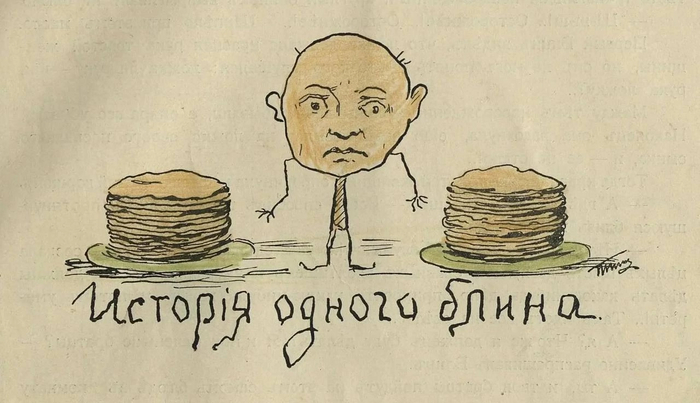 Исторія одного блина.